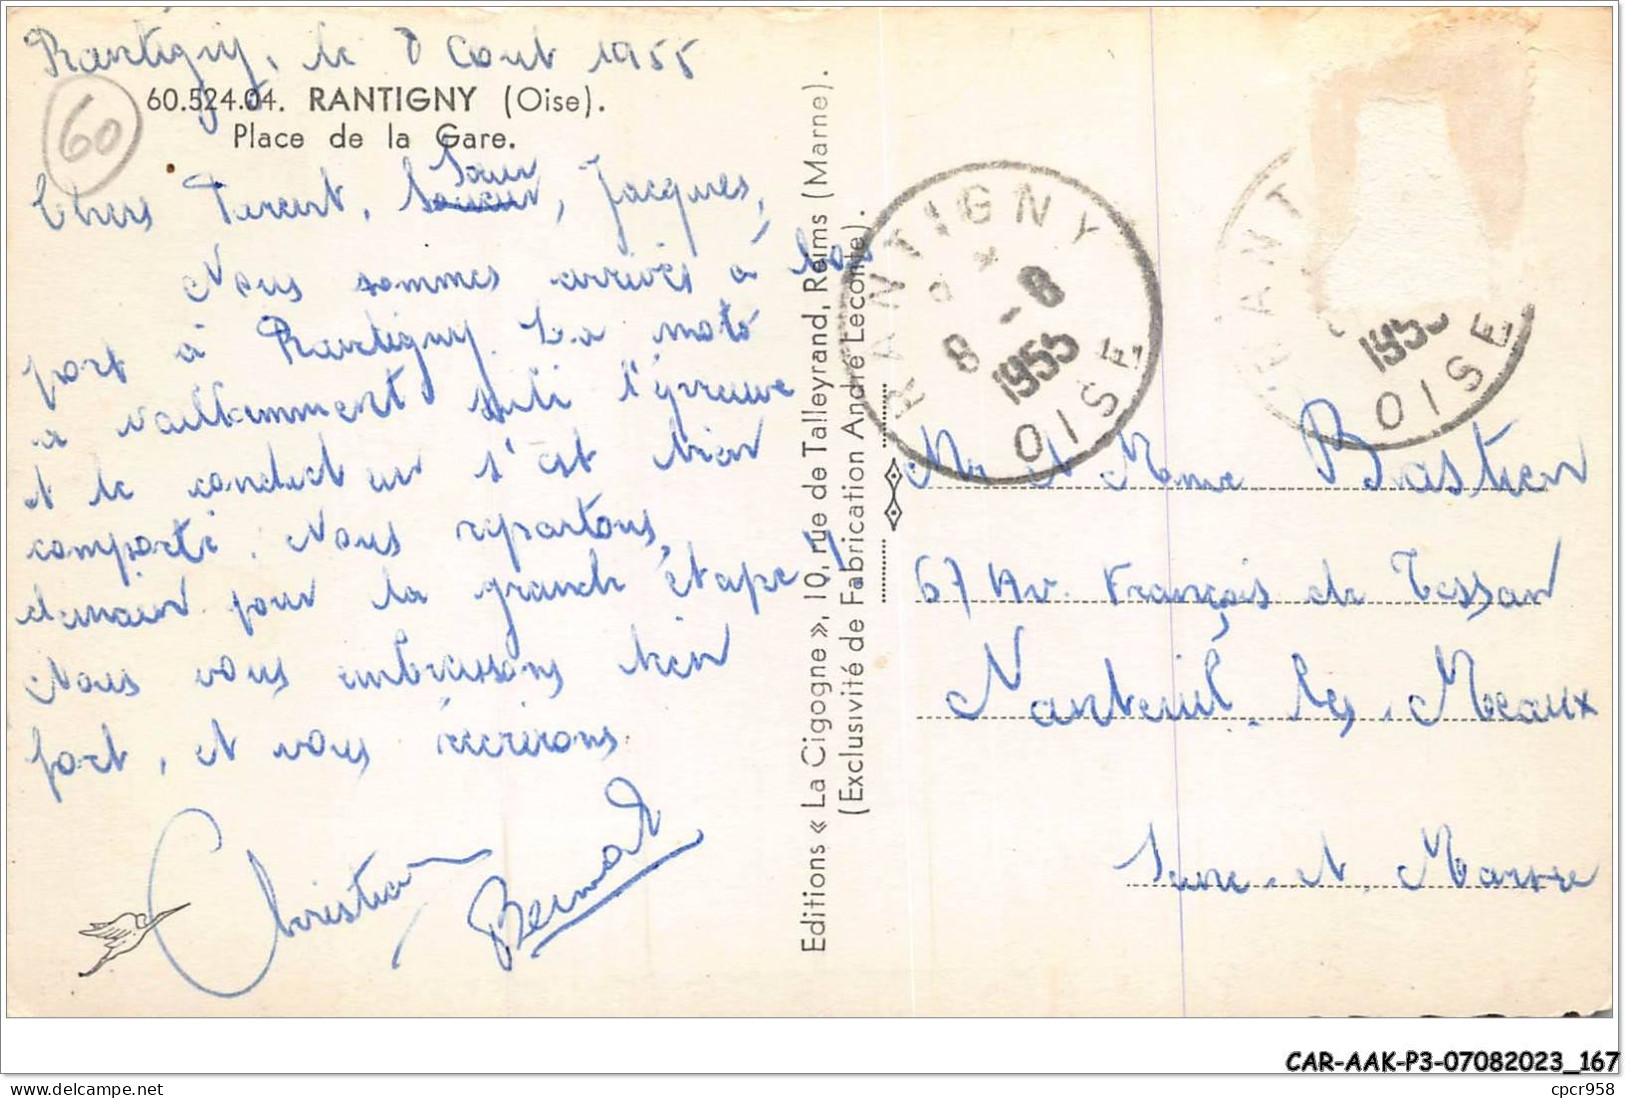 Rantigny, le 8 Aout 1955
60.524.04. RANTIGNY (Oise).
Place de la Gare.
60
Chers Soeur, Jacques,
Nous sommes arrivés à bon
port à Rantigny. La moto
a vaillamment subi l'épreuve
et le conducteur s'est bien
comporté. Nous repartons,
demain pour la grande étape.
Nous vous embrassons bien
fort, et vous écrirons
Christian
Bernard
Editions « La Cigogne », 10, rue de Talleyrand, Reims (Marne).
(Exclusivité de Fabrication André Lecomte).
RANTIGNY
8 -8
1955
OISE
1955
OISE
Mr et Mme Bastien
67 Av. François de Tessan
Nanteuil-les-Meaux
Seine-et-Marne
CAR-AAK-P3-07082023_167
www.delcampe.net
cpcr958